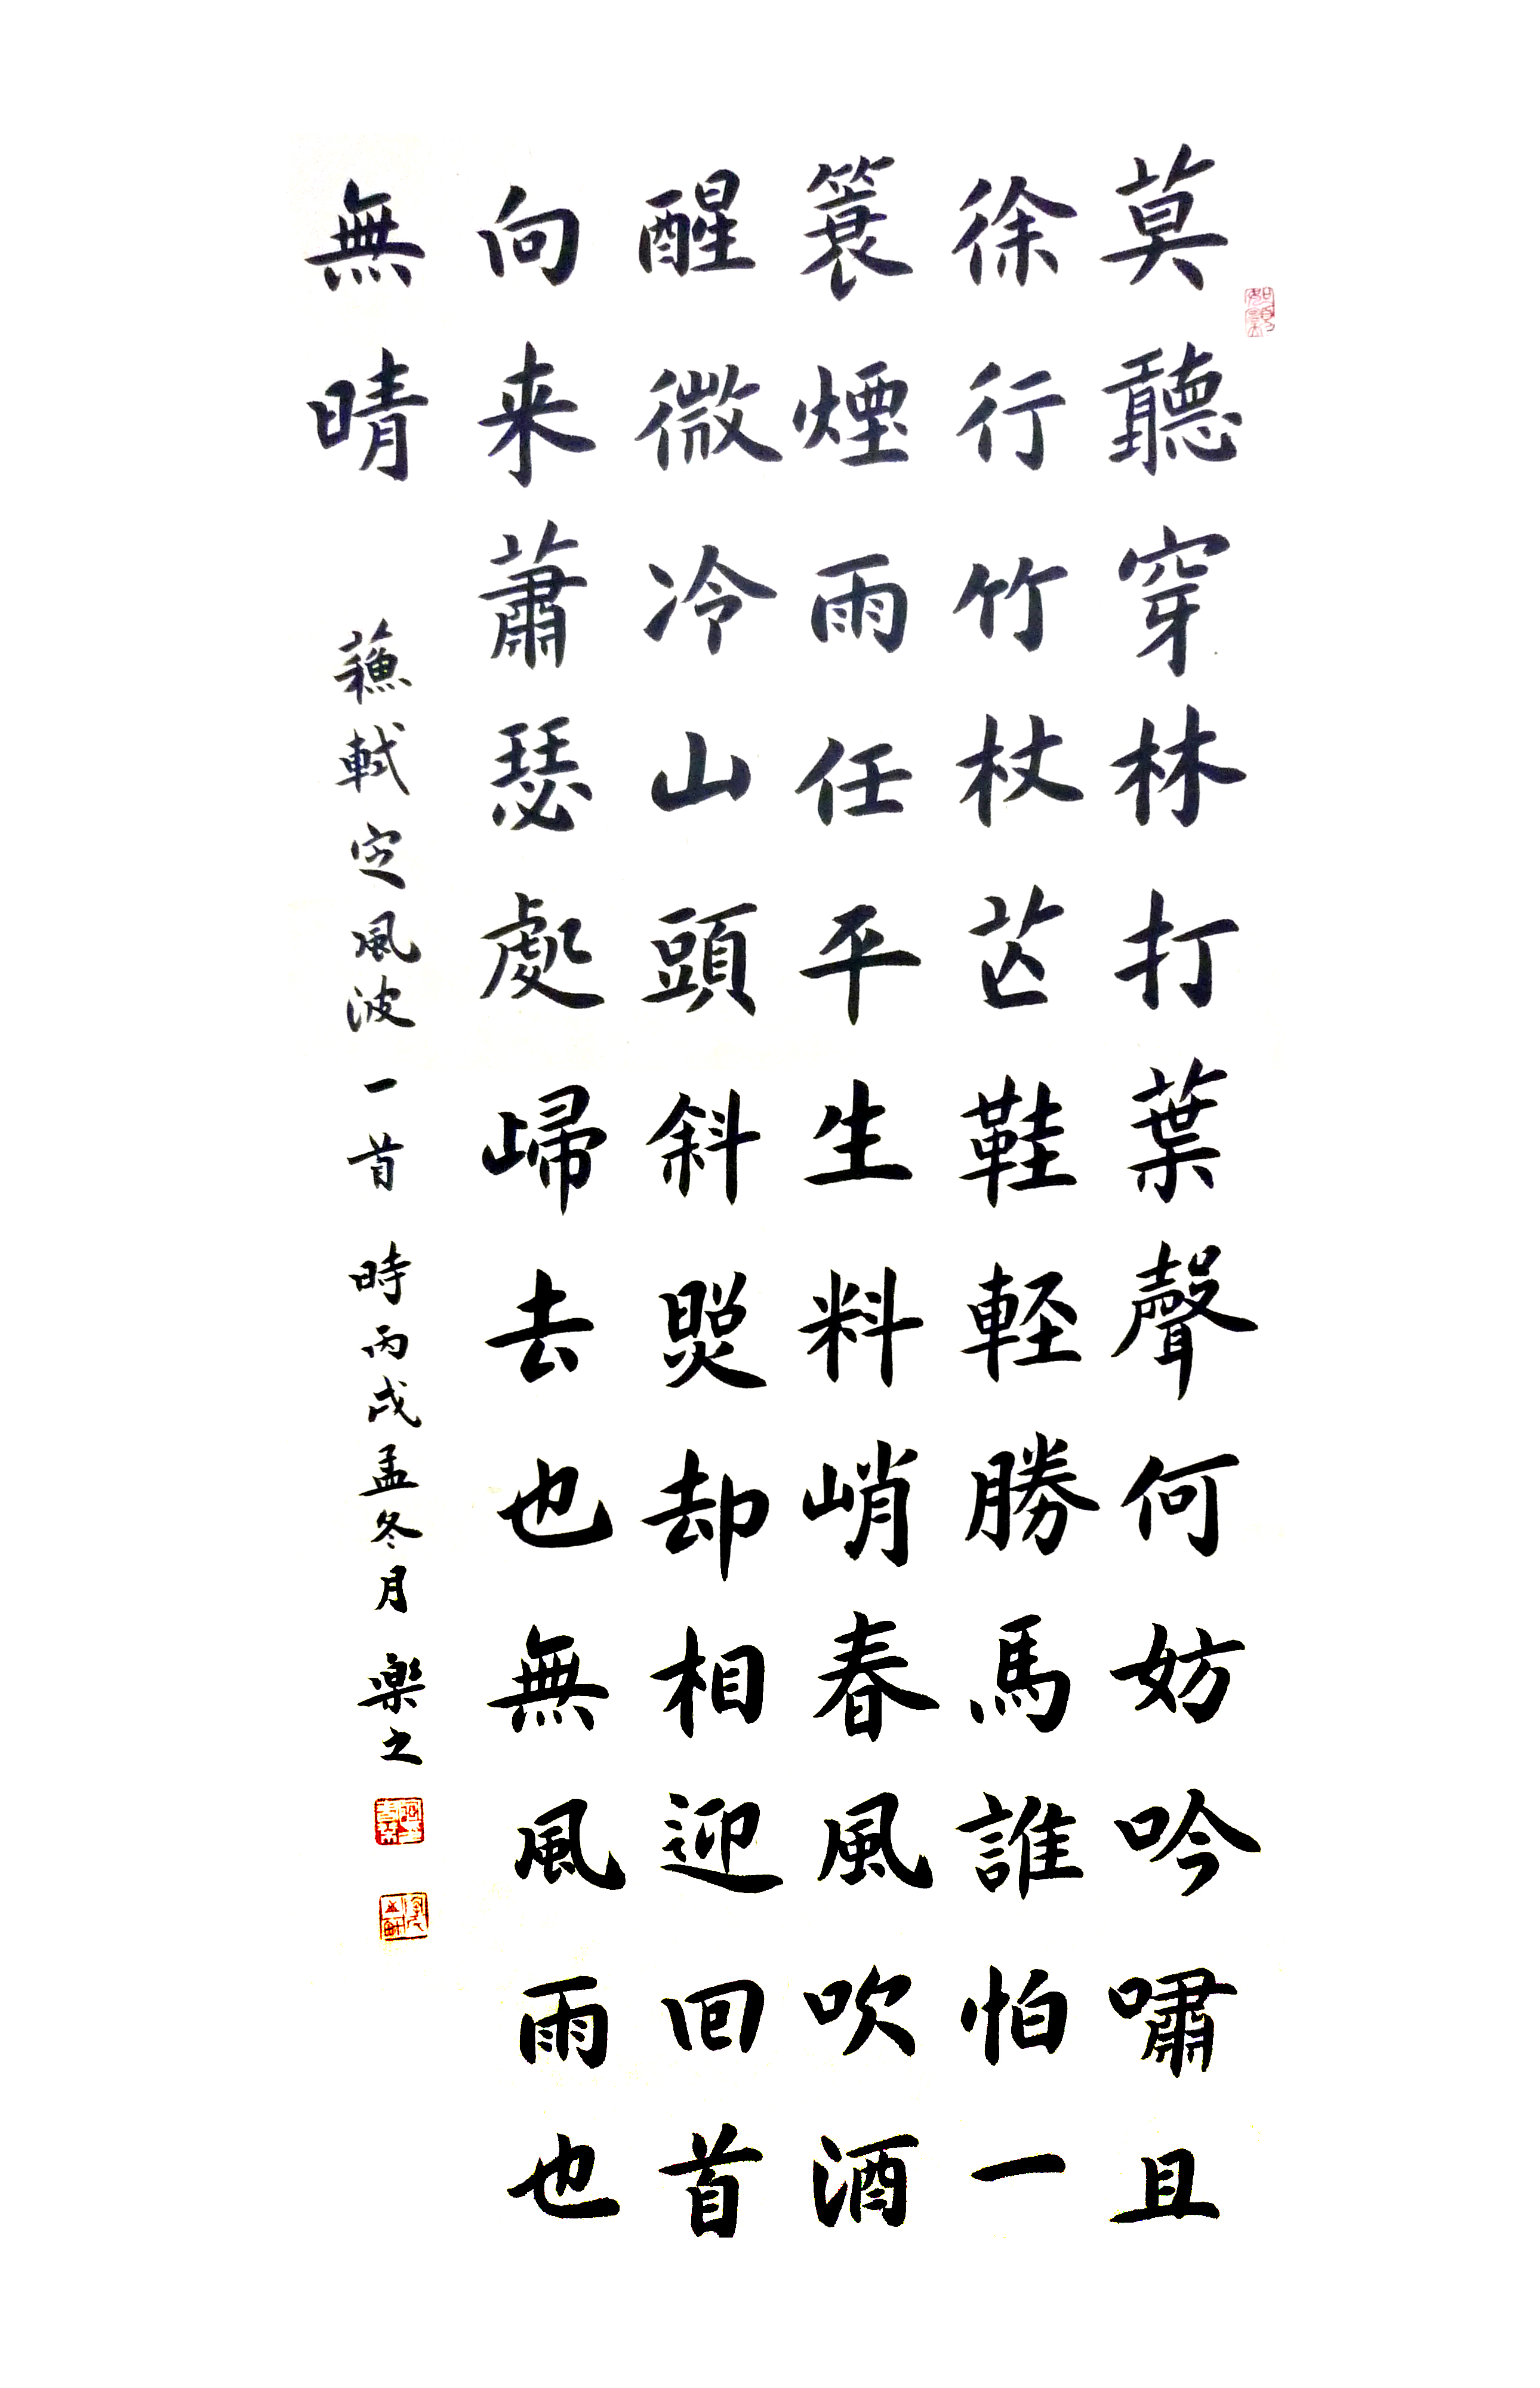 莫聽穿林打葉聲何妨吟嘯且
徐行竹杖芒鞋軽勝馬誰怕一
簑煙雨任平生料峭春風吹酒
醒微冷山頭斜照却相迎回首
向来蕭瑟處歸去也無風雨也
無晴
蘇軾定風波一首 時丙戌孟冬月 楽之